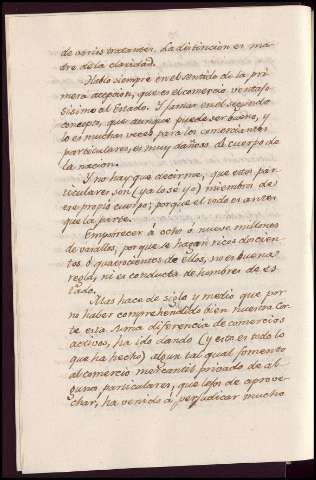 de arries tratantes. La distincion es ma-
dre de la claridad.
Hablo siempre en el sentido de la pri-
mera acepcion, que es el comercio ventajo-
sisimo al Estado. Y jamas en el segundo
concepto, que aunque puede ser bueno, y
lo es muchas veces para los comerciantes
particulares, es muy dañoso al cuerpo de
la nacion.
Y no hay que decirme, que estos par-
ticulares son (ya lo sé yo) miembros de
ese propio cuerpo; porque el todo es antes
que la parte.
Empobrecer á ocho ó nueve millones
de vasallos, porque se hagan ricos docien-
tos ó quatrocientos de ellos, no es buena
regla, ni es conducta de hombres de es-
tado.
Mas hace de siglo y medio que por
no haber comprehendido bien nuestra Cor-
te esta suma diferencia de comercios
activos, ha ido dando (y esto es todo lo
que ha hecho) algun tal qual fomento
al comercio mercantil privado de al-
gunos particulares, que lejos de aprove-
char, ha venido á perjudicar mucho